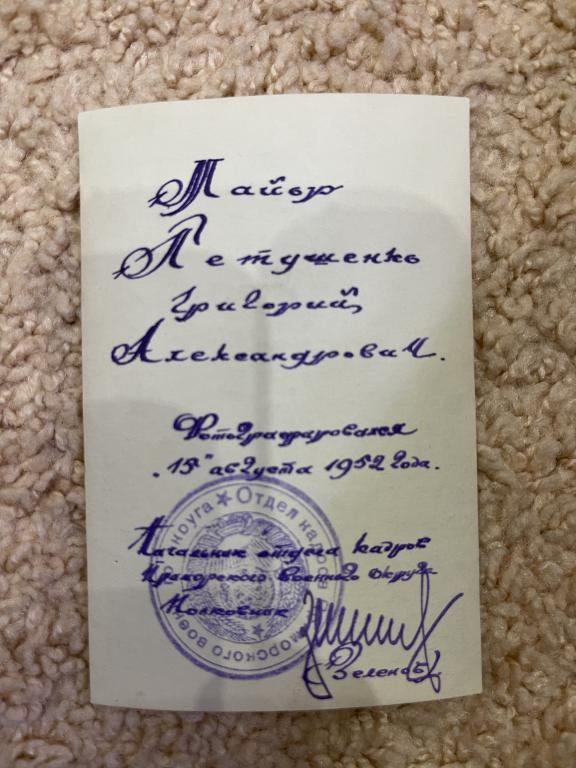 Майор
Петушенко
Григорий
Александрович.
Фотографировался
„15" августа 1952 года.
Начальник отдела кадров
Приморского военного округа
Полковник
Зеленов
Отдел кадров
морского военн округа